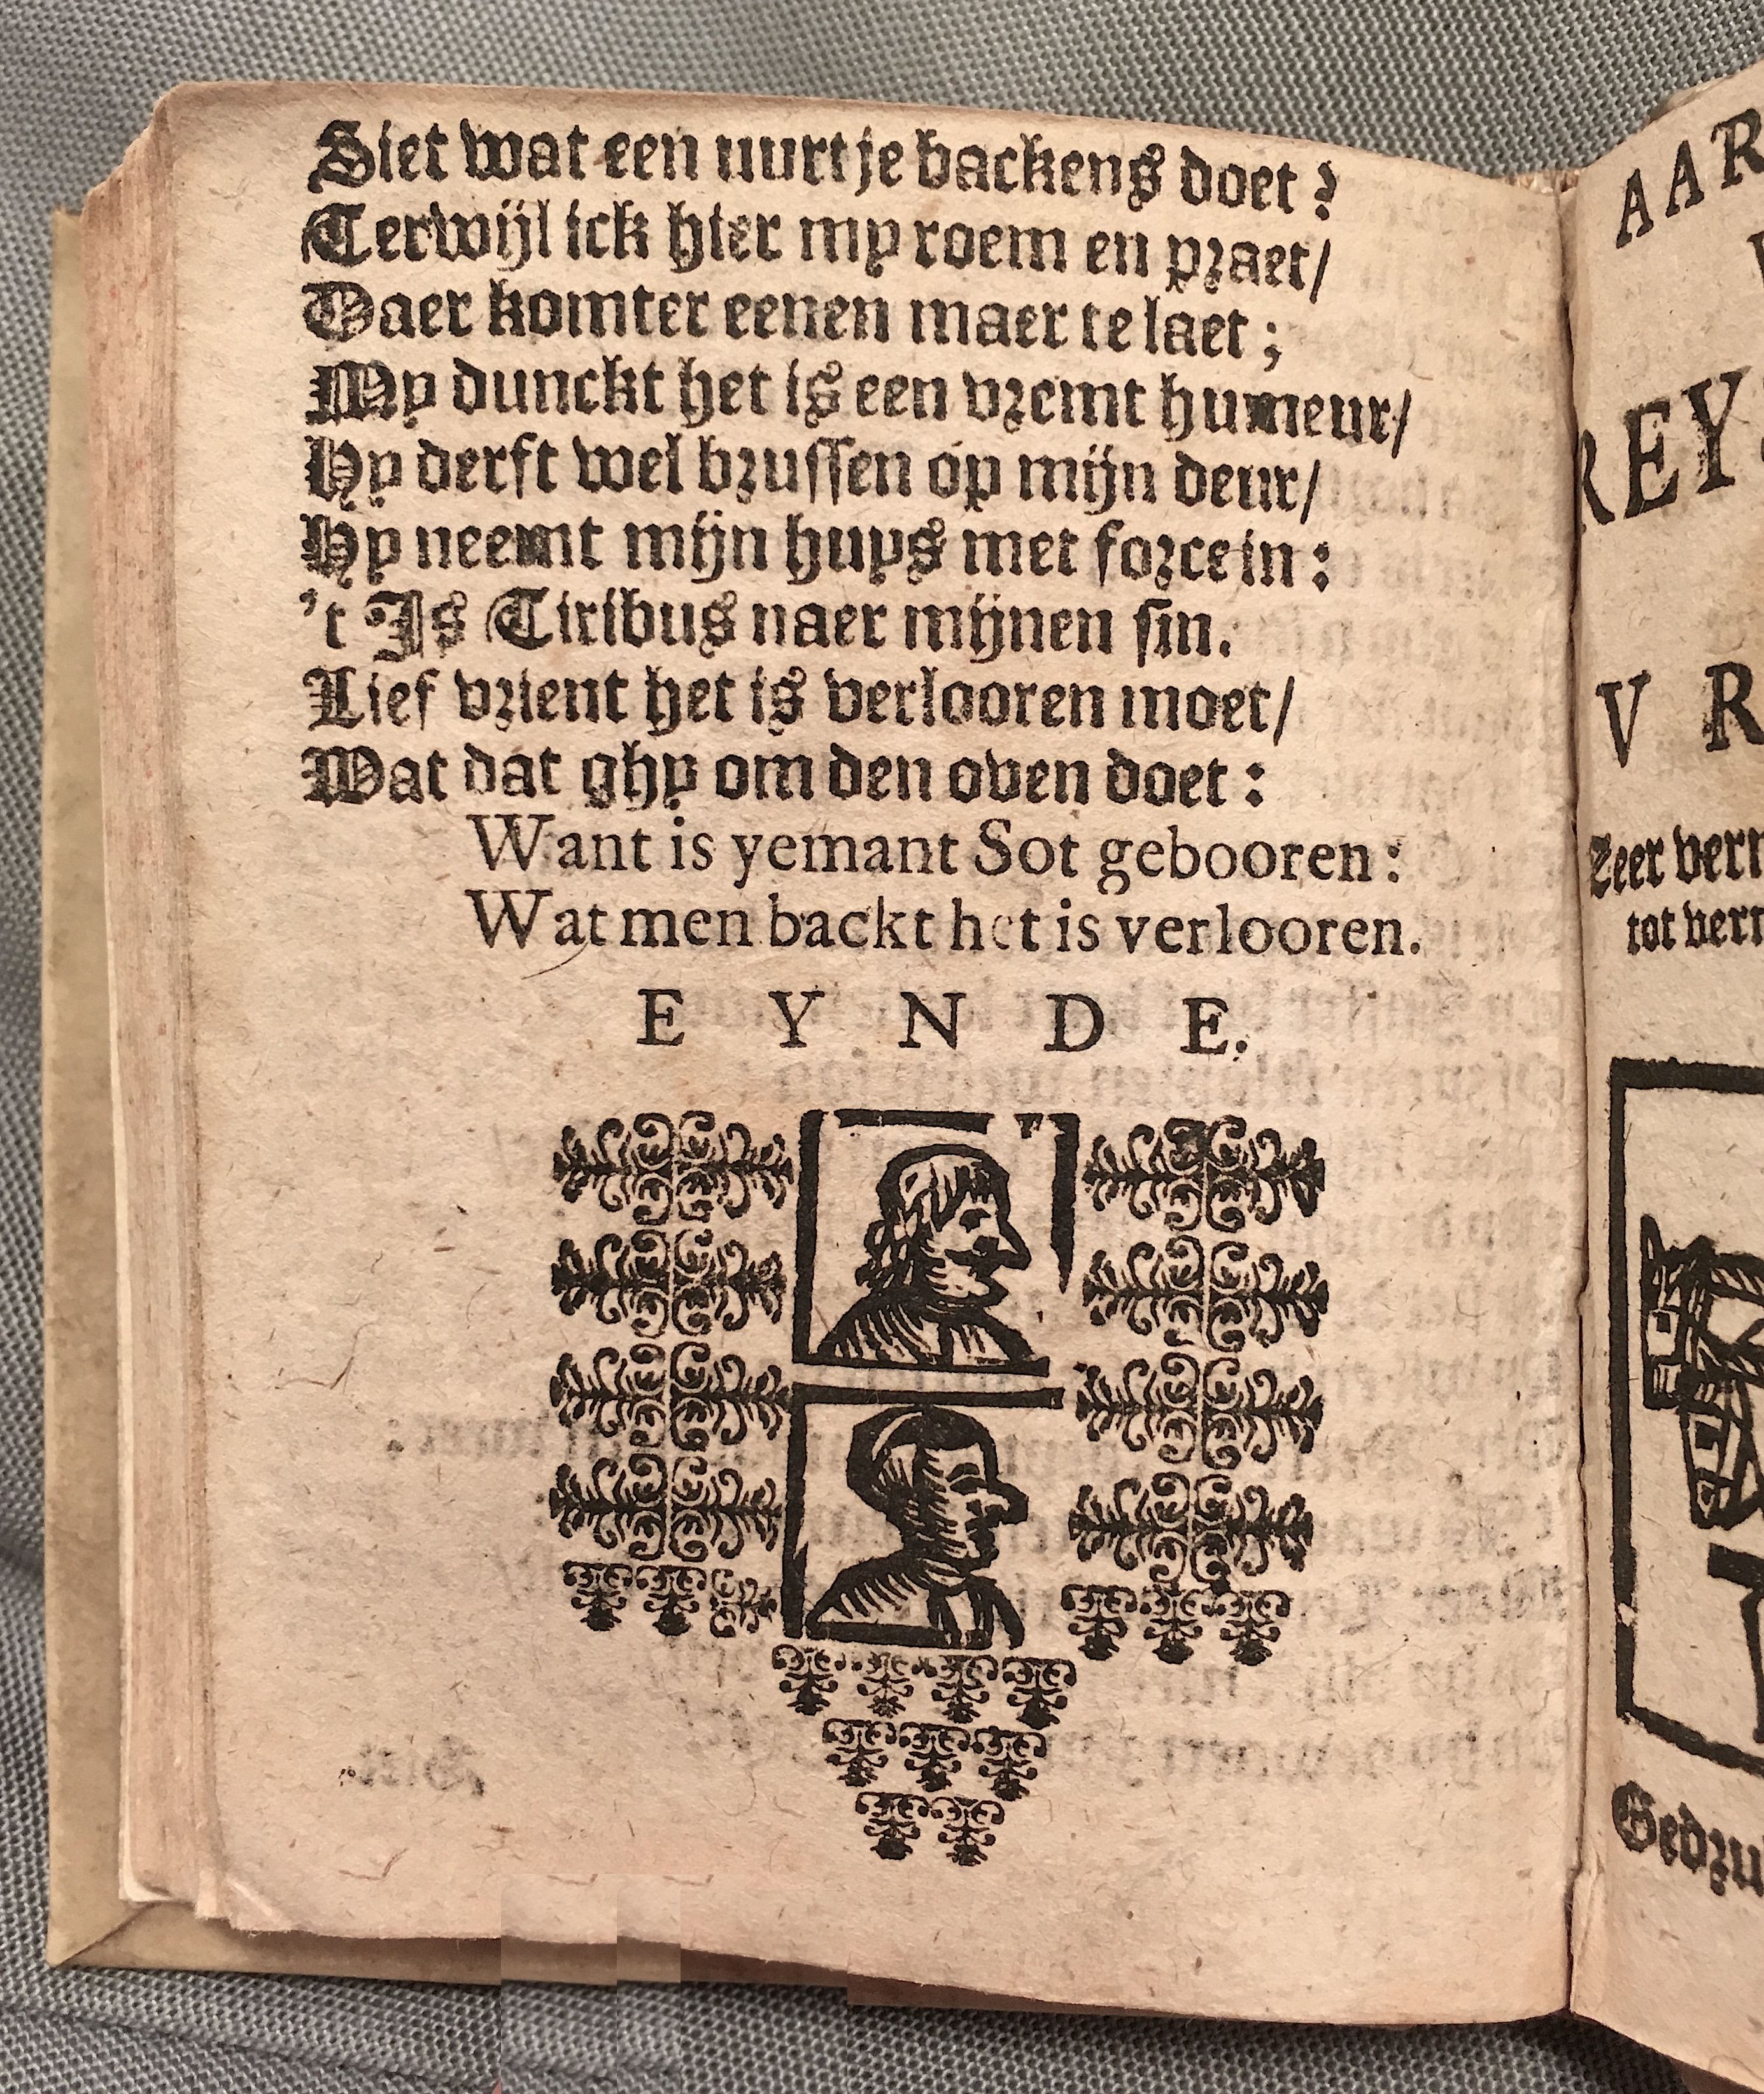 Siet wat een uurtje backens doet?
Terwijl ick hier my roem en praet/
Daer komter eenen maer te laet;
My dunckt het is een vremt humeur/
Hy derft wel brussen op mijn deur/
Hy neemt mijn huys met force in:
't Is Tiribus naer mijnen sin.
Lief vrient het is verlooren moet/
Wat dat ghy om den oven doet:
Want is yemant Sot gebooren:
Wat men backt het is verlooren.
EYNDE.
AAR
REY
VR
Zeer verm
tot verm
Gedru